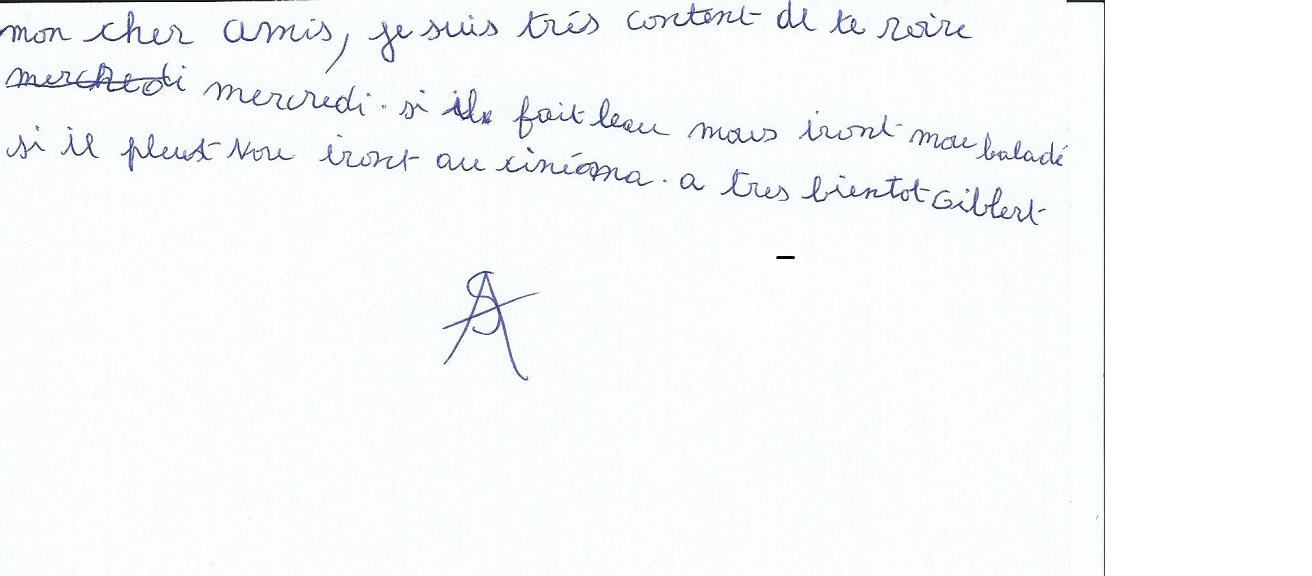 mon cher amis, je suis trés content de te roire
merchedi mercredi. si il fait beau nous iront nou baladé
si il pleut Nou iront au cinéma. a tres bientot Gilbert